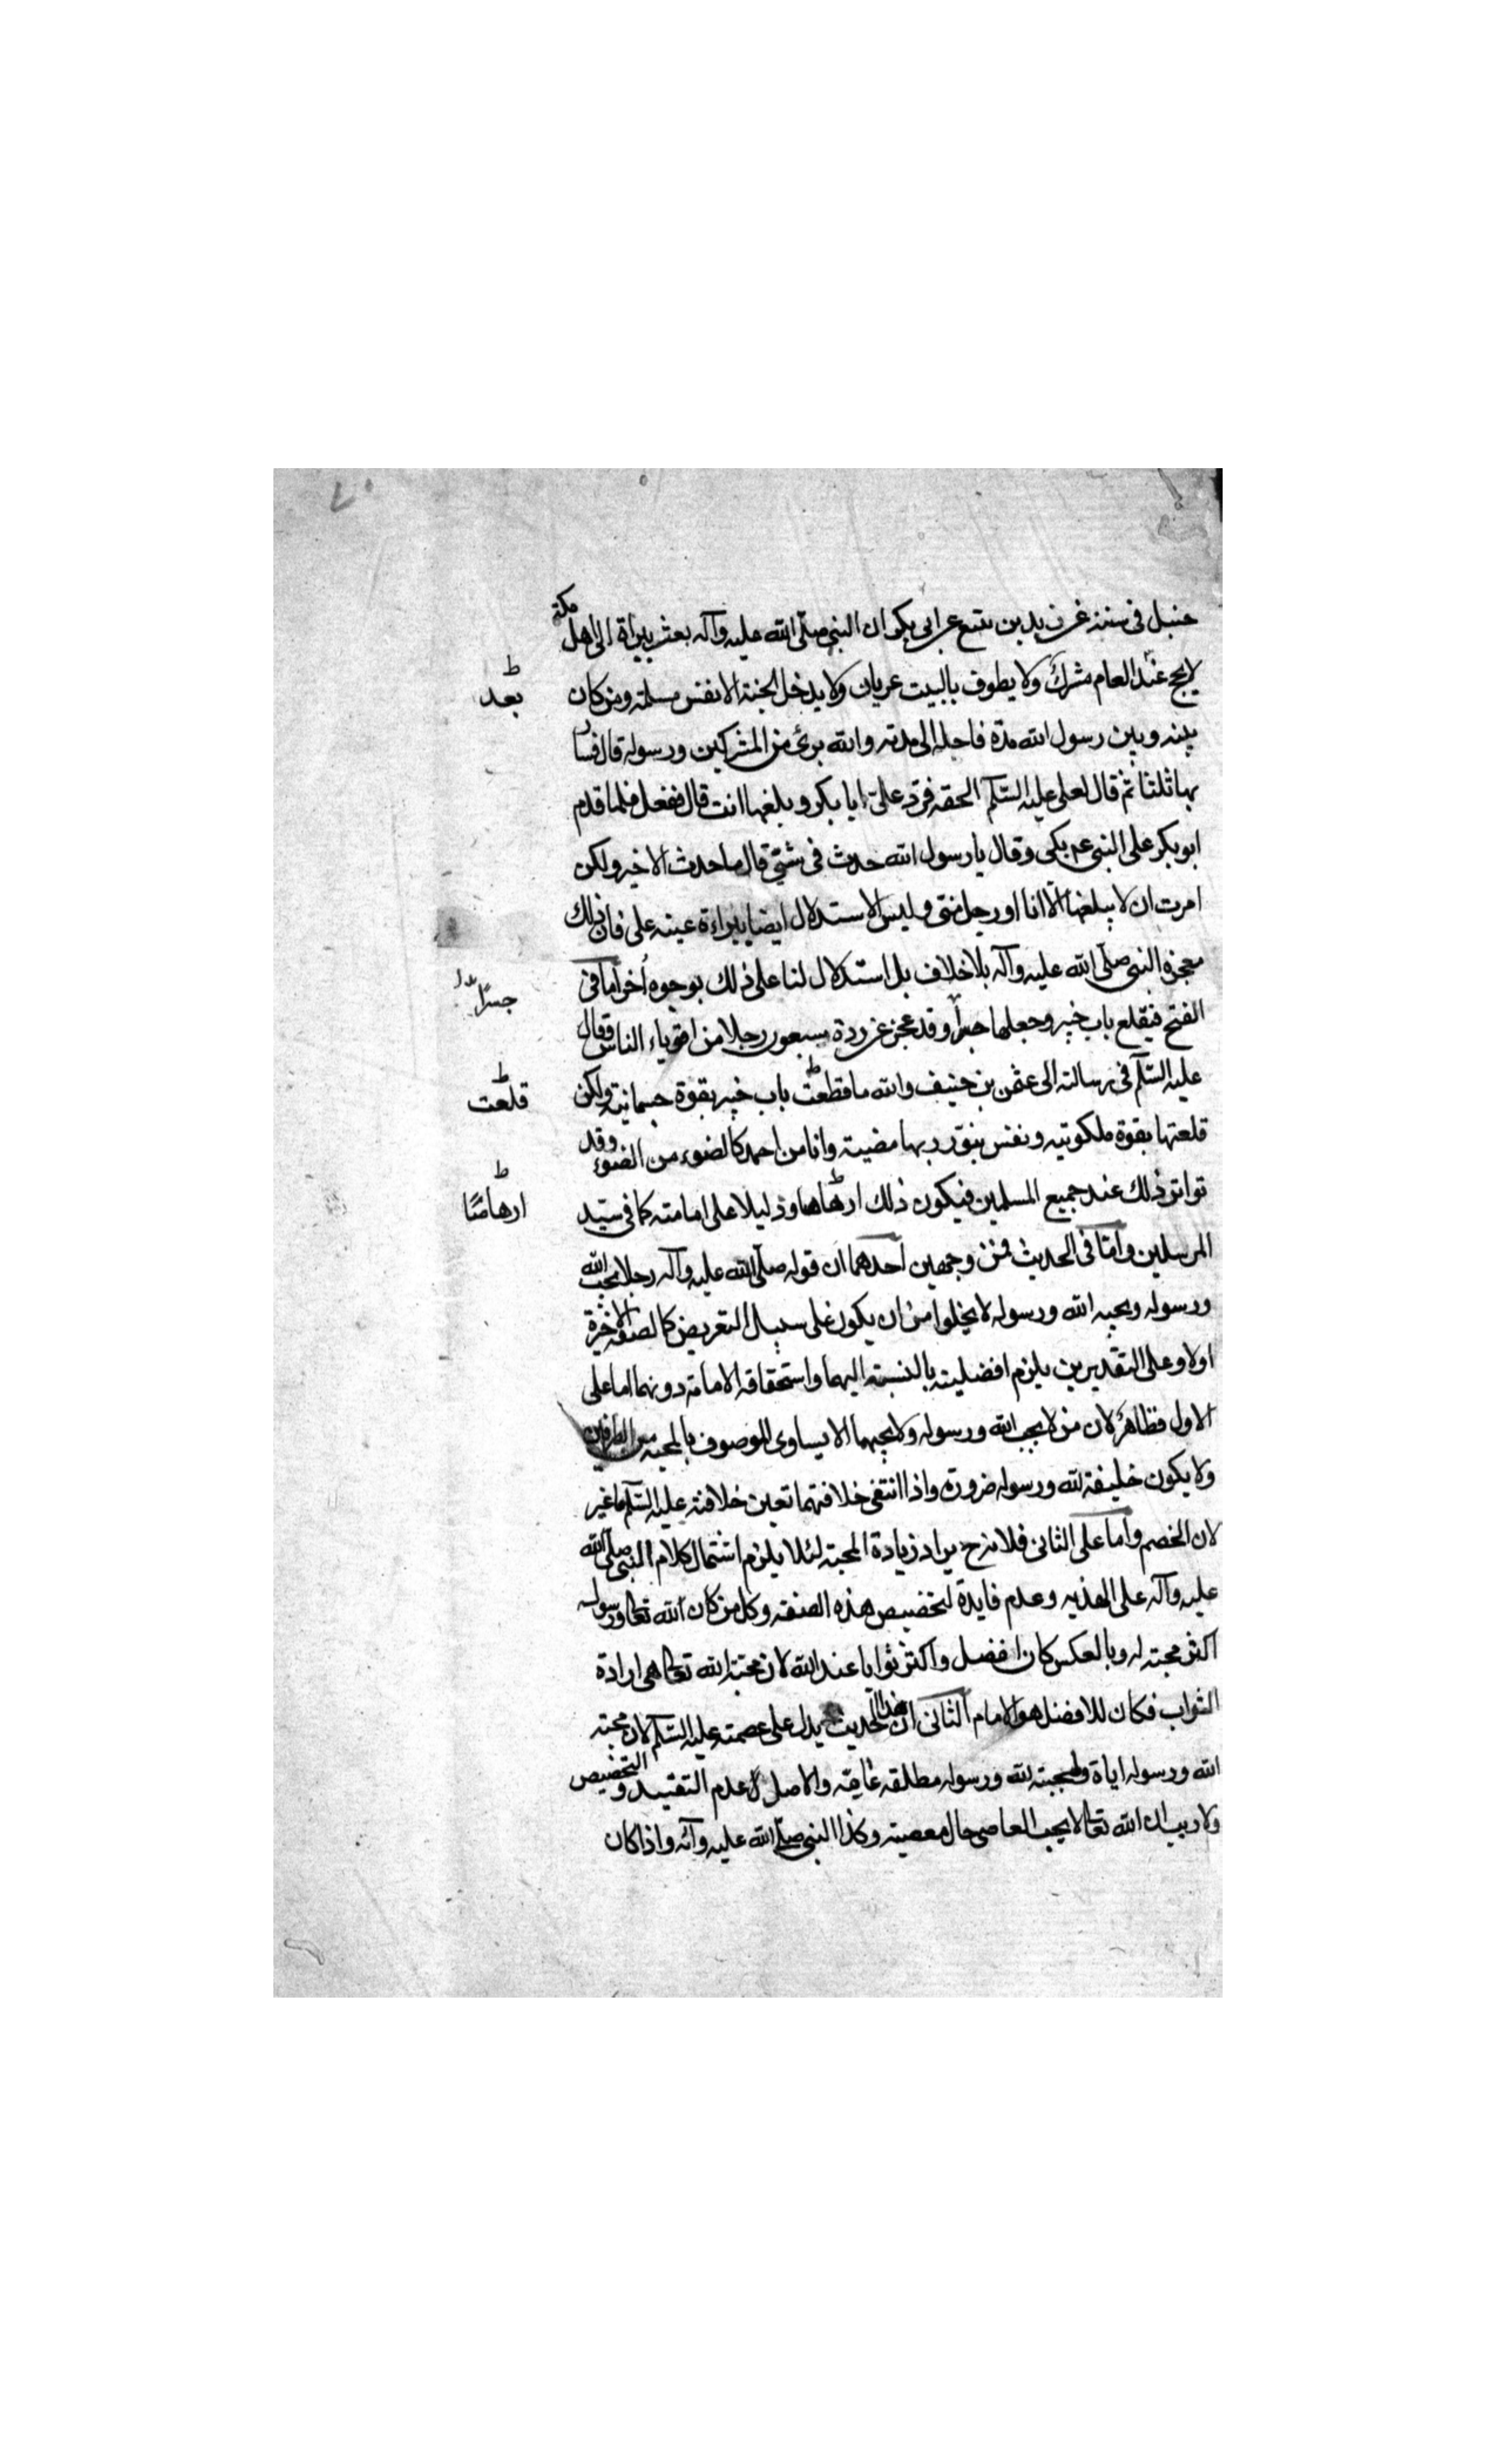 حنبل فى سننه عن زيد بن يثيع عن ابى بكر ان النبى صلّى الله عليه وآله بعثه ببراة الى اهل مكة
لا يحج عند العام مشرك ولا يطوف بالبيت عريان ولا يدخل الجنة الا نفس مسلمة ومن كان
بعد
بينه وبين رسول الله مدة فاجله الى مدته والله برئ من المشركين ورسوله قال فسار
بها ثلثا ثم قال لعلى عليه السّلم الحقه فردّ علىّ ابا بكر وبلغها انت قال ففعل فلما قدم
ابو بكر على النبى عم بكى وقال يا رسول الله حدث فى شئ قال ما حدث الا خير ولكن
امرت ان لا يبلغها الّا انا او رجل منى وليس الاستدلال ايضا ببراءة عينه على فان ذلك
معجزة النبى صلّى الله عليه وآله بلا خلاف بل استدلال لنا على ذلك بوجوه أخر اما فى
جسرًا
الفتح فبقلع باب خيبر وجعلها جسرا وقد عجز عن ردة سبعون رجلا من اقوياء الناس فقال
عليه السّلم فى رسالته الى عثمن بن حنيف والله ما قطعت باب خيبر بقوة جسمانية ولكن
قلعت
قلعتها بقوة ملكوتيه ونفس بنور ربها مضيئة وانا من احمد كالضوء من الضوء وقد
تواتر ذلك عند جميع المسلمين فيكون ذلك ارهاها ودليلا على امامته كما فى سيّد
ارهاصًا
المرسلين وامّا فى الحديث فمن وجهين احدهما ان قوله صلّى الله عليه وآله رجلا يحب الله
ورسوله ويحبه الله ورسوله لا يخلوا من ان يكون على سبيل التعريض كالصفة الاخيرة
اولا وعلى التقديرين يلزم افضليته بالنسبة اليهما واستحقاقه الامامة دونهما اما على
الاول فظاهر لان من لا يحب الله ورسوله ولا يحبهما الا يساوى الموصوف بالمحبة من الطرفين
ولا يكون خليفة لله ورسوله ضرورة واذا انتفى خلافتهما تعين خلافته عليه السّلم ما غير
لان الخصم واما على الثانى فلانه ح يراد زيادة المحبة لئلا يلزم اشتمال كلام النبى صلّى الله
عليه وآله على الهذيه وعدم فايدة لتخصيص هذه الصفة وكل من كان الله تعالى ورسوله
اكثر محبته له وبالعكس كان افضل واكثر ثوابا عند الله لان محبة الله تعالى هى ارادة
الثواب فكان للافضل هو الامام الثانى ان هذا الحديث يدل على عصمته عليه السّلم لان محبة
الله ورسوله اياة ومحبته لله ورسوله مطلقه عامّة والاصل عدم التقييد والتخصيص
ولا ريب ان الله تعالى لا يحب العاصى حال معصيته وكذا النبى صلّى الله عليه وآله واذا كان